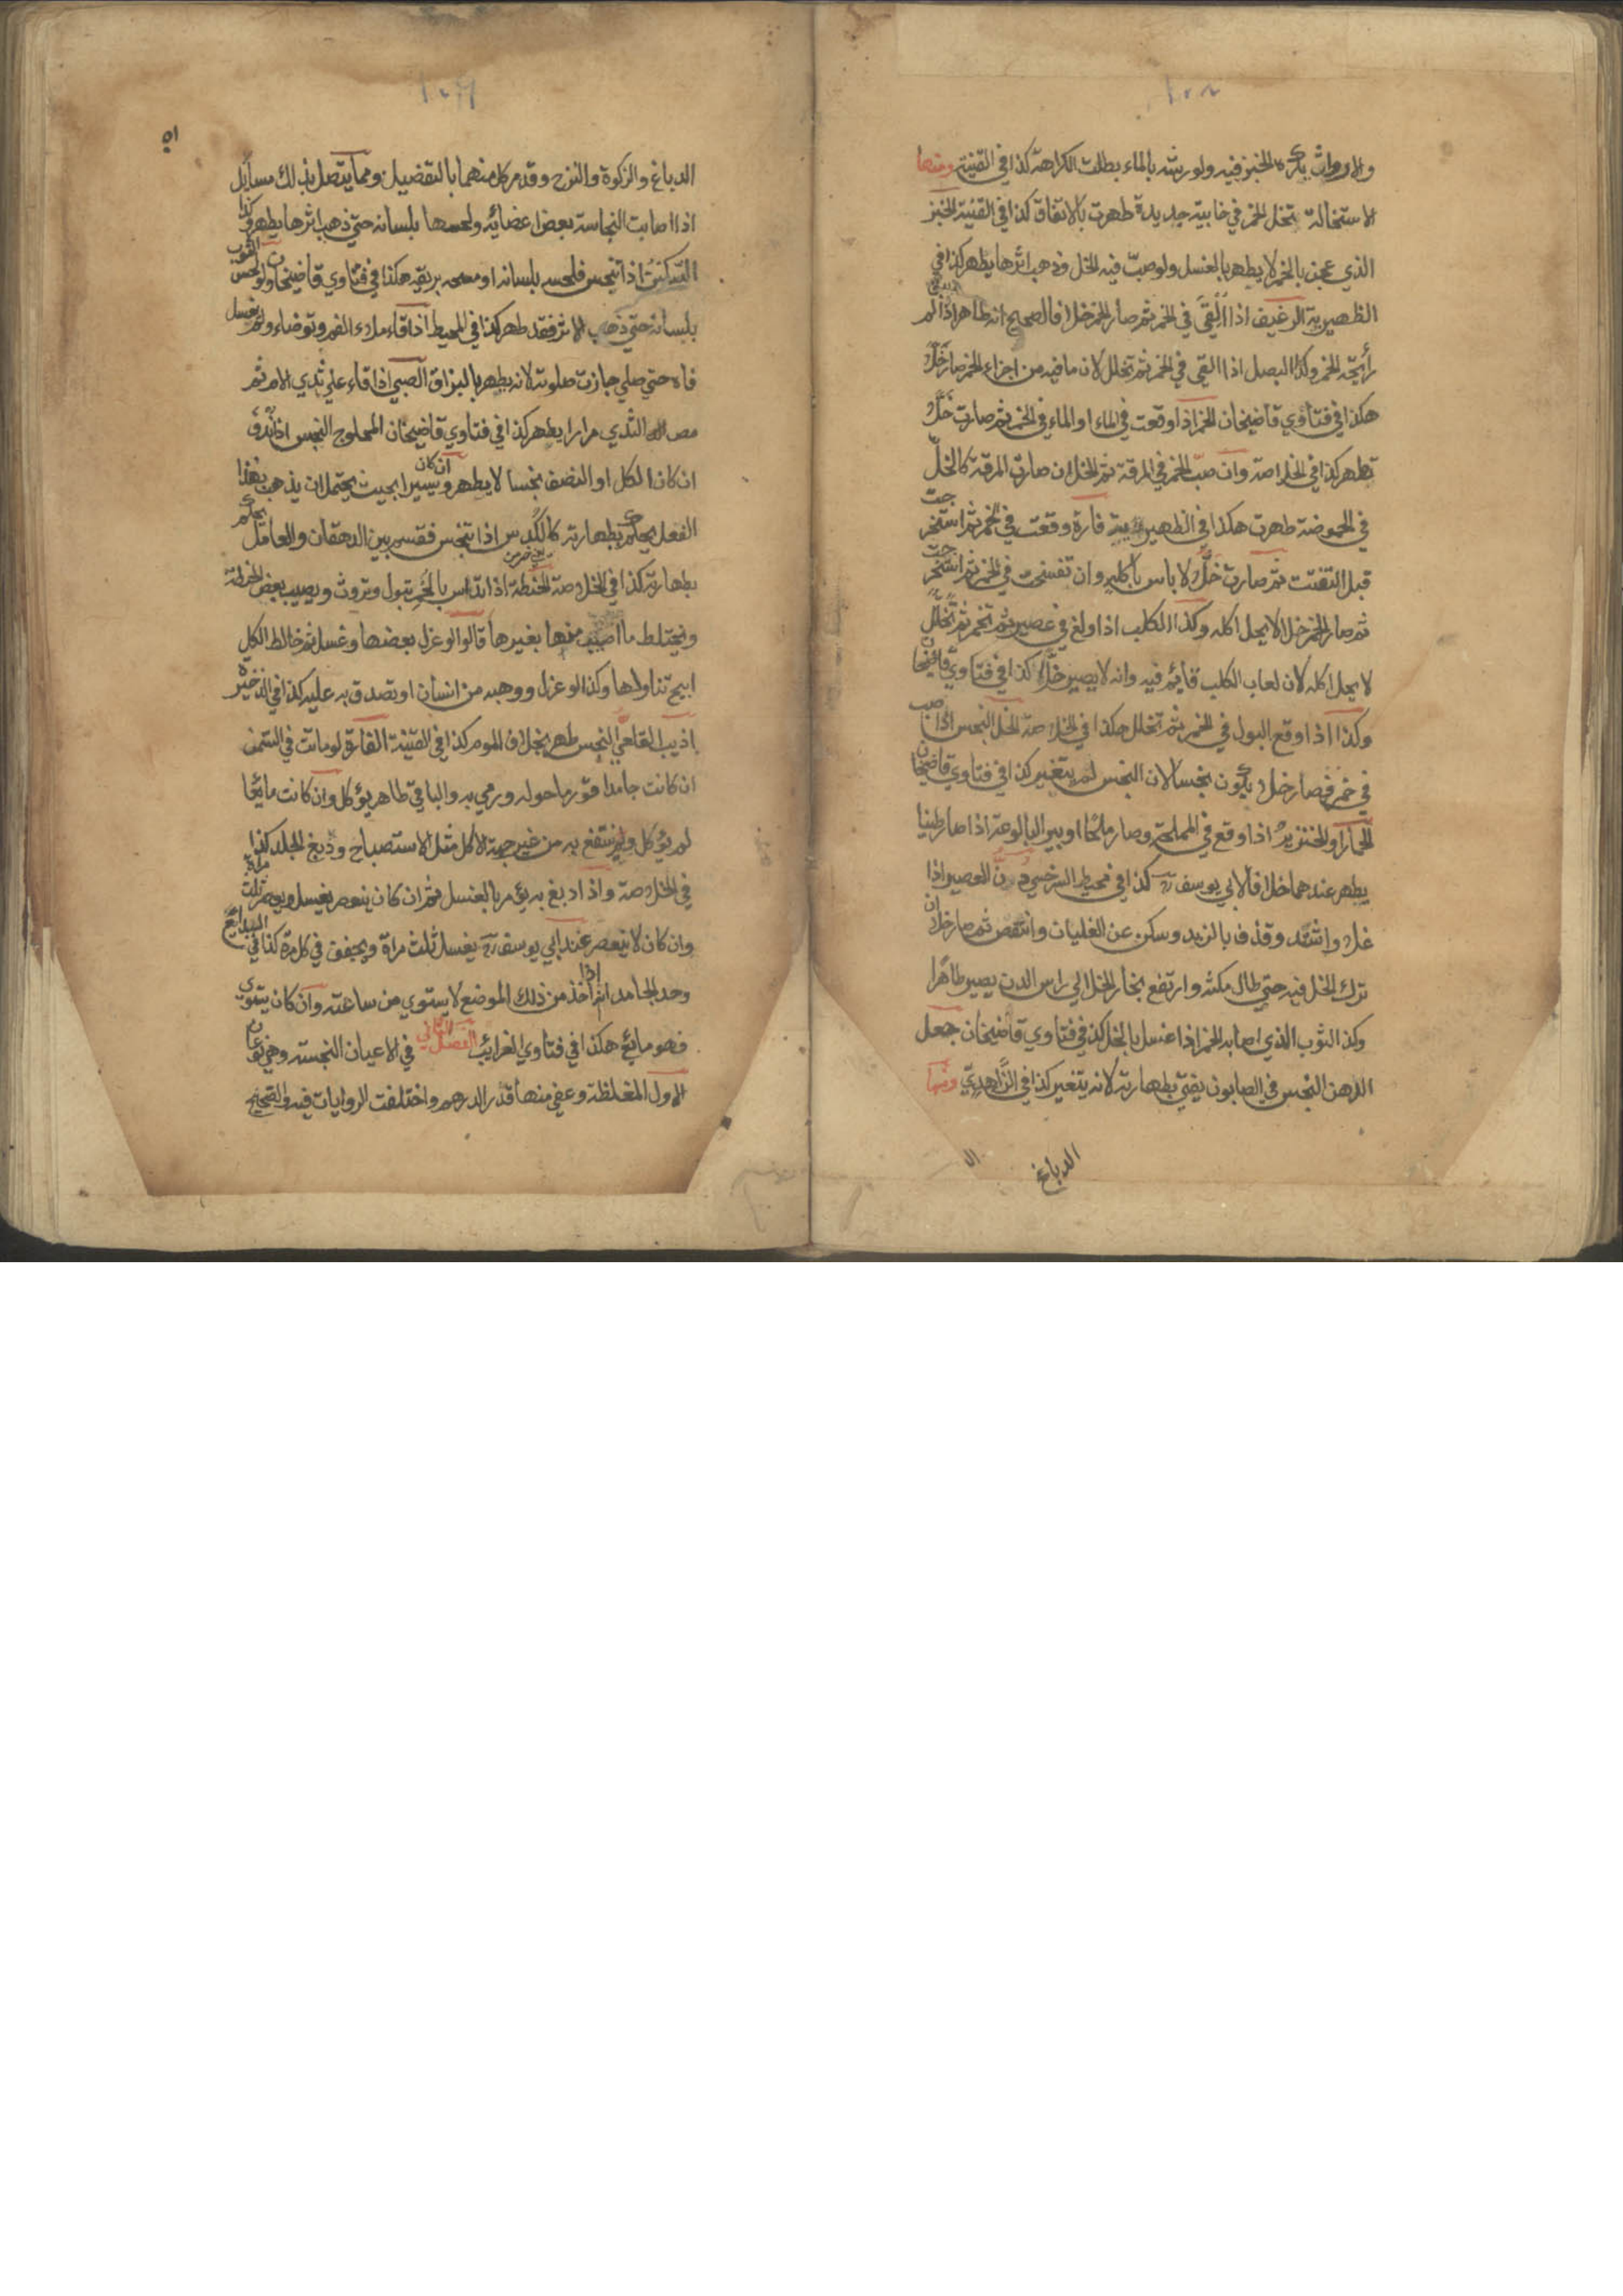 ١٠٨
والارواث يكره الخبز فيه ولو رشه بالماء بطلت الكراهة كذا في القنية ومنها
الاستحالة تخلل الخمر في خابية جديدة طهرت بالاتفاق كذا في القنية الخبز
الذي عجن بالخمر لا يطهر بالغسل ولو صبّ فيه الخل وذهب اثرها يطهر كذا في
الظهيرية الرغيف اذا القي في الخمر ثم صار الخمر خلا فالصحيح انه طاهر اذا لم
رايحة الخمر وكذا البصل اذا القي في الخمر ثم تخلل لان ما فيه من اجزاء الخمر صار خلّا
هكذا في فتاوي قاضيخان الخمر اذا وقعت في الماء او الماء في الخمر ثم صارت خلّا
تطهر كذا في الخلاصة وان صبّ الخمر في المرقة ثم الخل ان صارت المرقة كالخلّ
في الحموضة طهرت هكذا في الظهيرية فارة وقعت في الخمر ثم استخرجت
قبل التفتت ثم صارت خلّا لا باس باكله وان تفسخت في الخمر ثم استخرجت
ثم صار الخمر خلا لا يحل اكله وكذا الكلب اذا ولغ في عصير ثم تخمر ثم تخلّل
لا يحل اكله لان لعاب الكلب قايم فيه وانه لا يصير خلّا كذا في فتاوي قاضيخان
وكذا اذا وقع البول في الخمر ثم تخلل هكذا في الخلاصة الخل النجس اذا صب
في خمر فصار خلا يكون نجسا لان النجس لم يتغير كذا في فتاوي قاضيخان
الحمار او الخنزير اذا وقع في المملحة وصار ملحا او بير البالوعة اذا صار طينا
يطهر عندهما خلافا لابي يوسف رح كذا في محيط السرخسي دنّ العصير اذا
غلا واشتد وقذف بالزبد وسكن عن الغليان وانتقص ثم صار خلا ان
ترك الخل فيه حتي طال مكثه وارتفع بخار الخل الي راس الدن يصير طاهرا
وكذا الثوب الذي اصابه الخمر اذا غسل بالخل كذا في فتاوي قاضيخان جعل
الدهن النجس في الصابون يفتي بطهارته لانه يتغير كذا في الزاهدي ومنها
الدباغ
١٠٩
٥١
الدباغ والزكوة والنزح وقد مر كل منهما بالتفضيل ومما يتصل بذلك مسايل
اذا اصابت النجاسة بعض اعضايه ولحسها بلسانه حتي ذهب اثرها يطهر وكذا
السكين اذا تنجس فلحسه بلسانه او مسحه بريقه هكذا في فتاوي قاضيخان ولو لحس الثوب
بلسانه حتي ذهب الاثر فقد طهر كذا في المحيط اذا قاء ملاء الفم وتوضاء ولم يغسل
فاه حتي صلي جازت صلوته لانه يطهر بالبزاق الصبي اذا قاء علي ثدي الام ثم
مص الثدي مرارا يطهر كذا في فتاوي قاضيخان المحلوج النجس اذا ندف
ان كان الكل او النصف نجسا لا يطهر وان كان يسيرا بحيث يحتمل ان يذهب بهذا
الفعل يحكم بطهارته كالكدس اذا تنجس فقسم بين الدهقان والعامل يحكم
بطهارته كذا في الخلاصة الحنطة اذا تداس بالحمر تبول وتروث ويصيب بعض الحنطة
ويختلط ما اصيب منها بغيرها قالوا لو عزل بعضها وغسل ثم خالط الكل
ابيح تناولها وكذا لو عزل ووهبه من انسان او تصدق به عليه كذا في الذخيرة
اذيب القلعي النجس طهر بخلاف الموم كذا في القنية الفارة لو ماتت في السمن
ان كانت جامدا قور ما حوله ورمي به والباقي طاهر يؤكل وان كانت مايعا
لم يؤكل وينتفع به من غير جهة الاكل مثل الاستصباح ودبغ الجلد كذا
في الخلاصة واذا دبغ به يؤمر بالغسل ثم ان كان ينعصر يغسل ويعصر ثلث مراة
وان كان لا ينعصر عند ابي يوسف رح يغسل ثلث مراة ويجفف في كل مرة كذا في البدايع
وحد الجامد انه اذا اخذ من ذلك الموضع لا يستوي من ساعته وان كان يستوي
فهو مايع هكذا في فتاوي الغرايب الفصل الثاني في الاعيان النجسة وهي نوعان
الاول المغلظة وعفي منها قدر الدرهم واختلفت الروايات فيه والصحيح